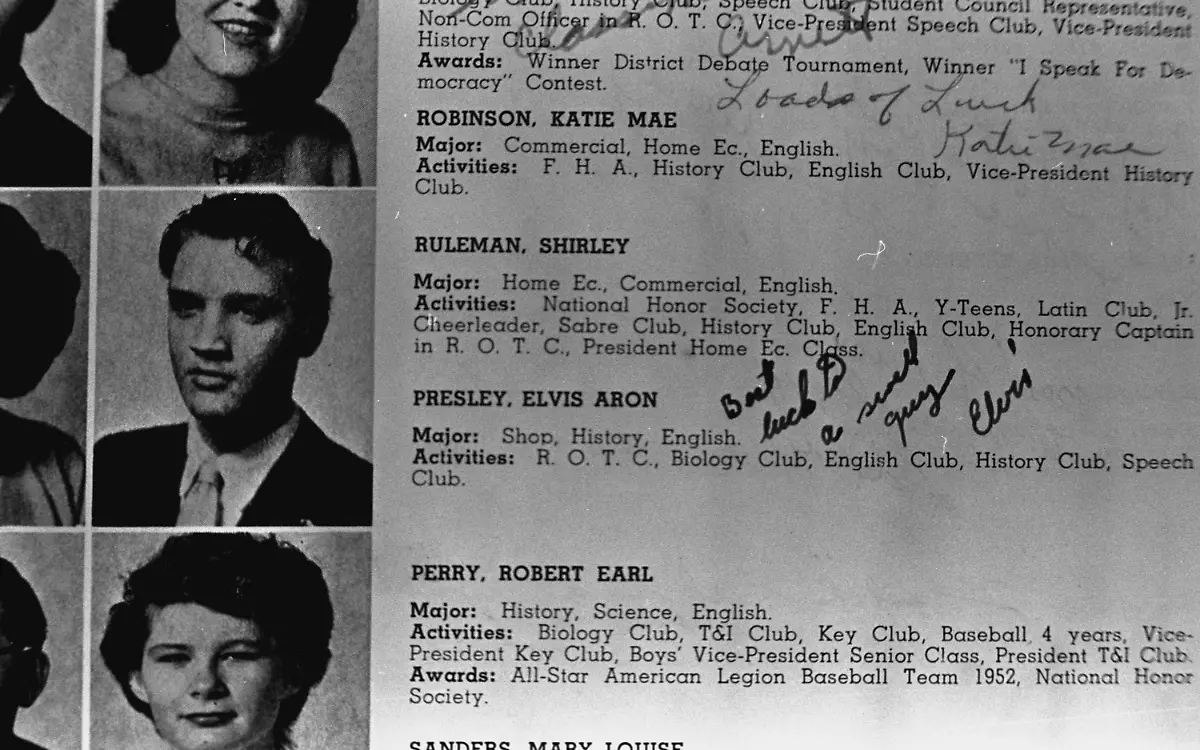 Biology Club, History Club, Speech Club, Student Council Representative,
Non-Com Officer in R. O. T. C., Vice-President Speech Club, Vice-President
History Club.
Awards: Winner District Debate Tournament, Winner "I Speak For De-
mocracy" Contest.
Loads of Luck
Katie Mae
ROBINSON, KATIE MAE
Major: Commercial, Home Ec., English.
Activities: F. H. A., History Club, English Club, Vice-President History
Club.
RULEMAN, SHIRLEY
Major: Home Ec., Commercial, English.
Activities: National Honor Society, F. H. A., Y-Teens, Latin Club, Jr.
Cheerleader, Sabre Club, History Club, English Club, Honorary Captain
in R. O. T. C., President Home Ec. Class.
PRESLEY, ELVIS ARON
Best luck to a swell guy Elvis
Major: Shop, History, English.
Activities: R. O. T. C., Biology Club, English Club, History Club, Speech
Club.
PERRY, ROBERT EARL
Major: History, Science, English.
Activities: Biology Club, T&I Club, Key Club, Baseball 4 years, Vice-
President Key Club, Boys' Vice-President Senior Class, President T&I Club.
Awards: All-Star American Legion Baseball Team 1952, National Honor
Society.
SANDERS, MARY LOUISE